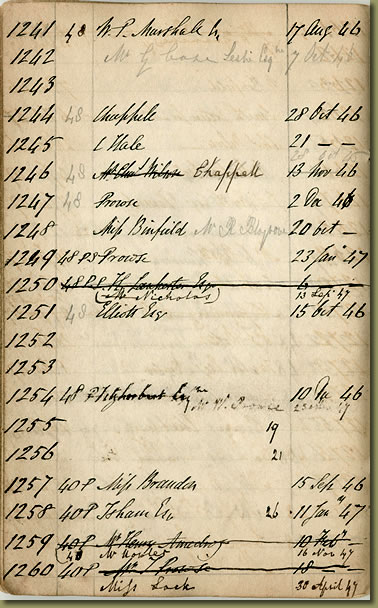 1241 48 W. P. Marshall 17 Aug 46
1242 Mr G Case Leslie Esq 7 Oct 48
1243
1244 48 Chappell 28 Oct 46
1245 C Hale 21 — —
1246 48 Chappell 13 Nov 46
1247 48 Prowse 2 Dec 46
1248 Miss Binfield Mr R 20 Oct —
1249 48 P.S Prowse 23 Jan 47
1250 48 P.S 6
(Mr Nicholas) 13 Sep 47
1251 48 Elliott Esq 15 Oct 46
1252
1253
1254 48 P Fitzherbert Esq 10 46
Mr W. Prowse 47
1255 19
1256 21
1257 40 P Miss Brander 15 Sep 46
1258 40 P Isham Esq 26 11 Jan 47
1259 40 P Mr Henry 19 Feb
48 16 Nov 47
1260 40 P Mr 18 —
Miss Lock 30 April 47